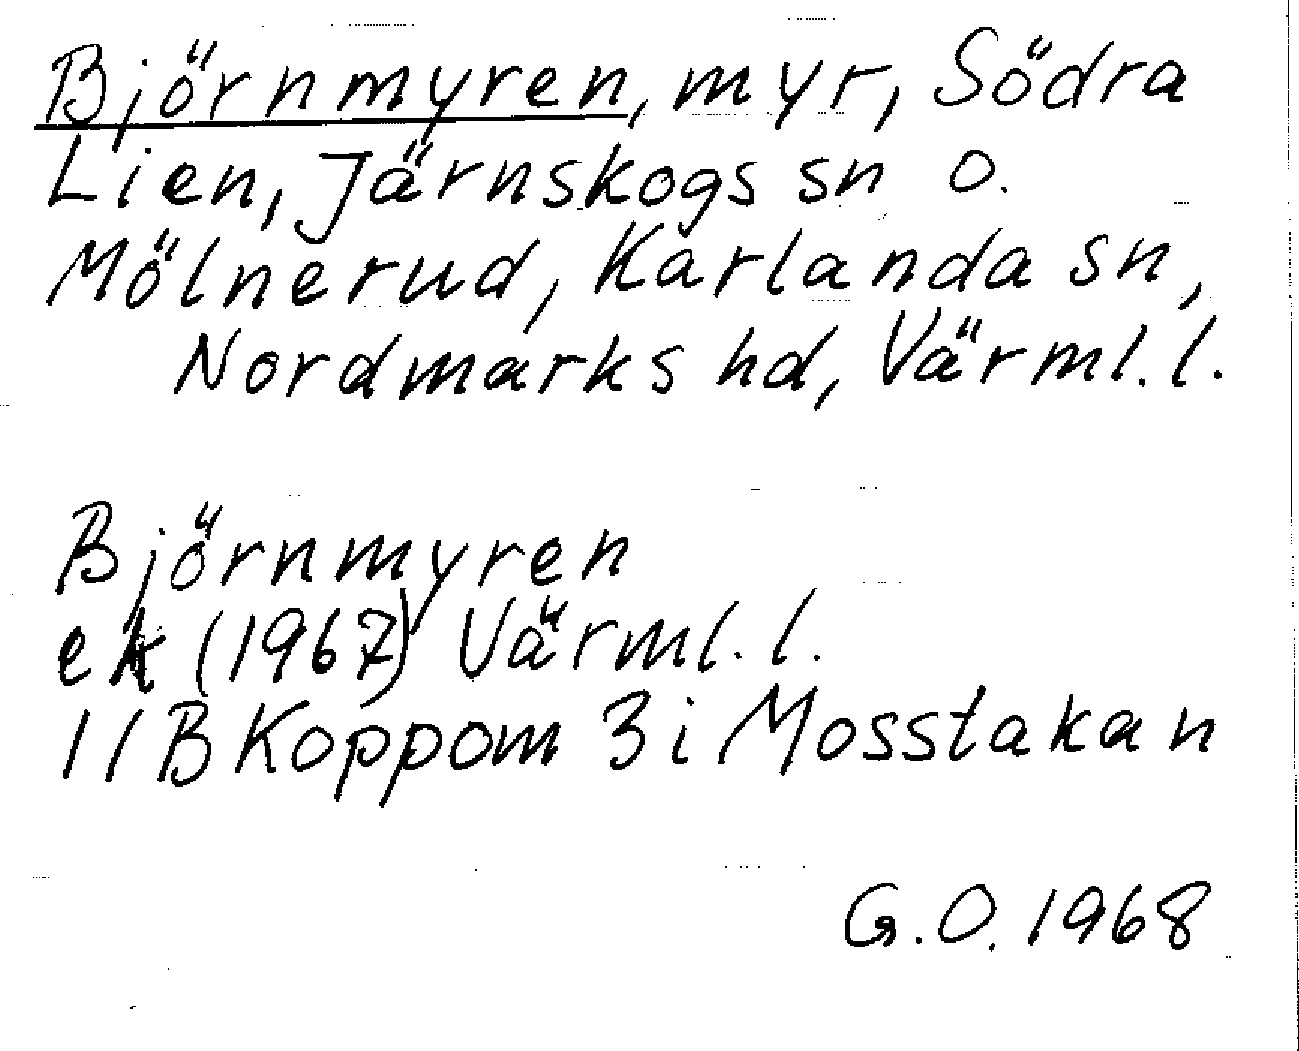 Björnmyren, myr, Södra
Lien, Järnskogs sn o.
Mölnerud, Karlanda sn,
Nordmarks hd, Värml. l.
Björnmyren
ek (1967) Värml. l.
11B Koppom 3i Mosstakan
G.O. 1968